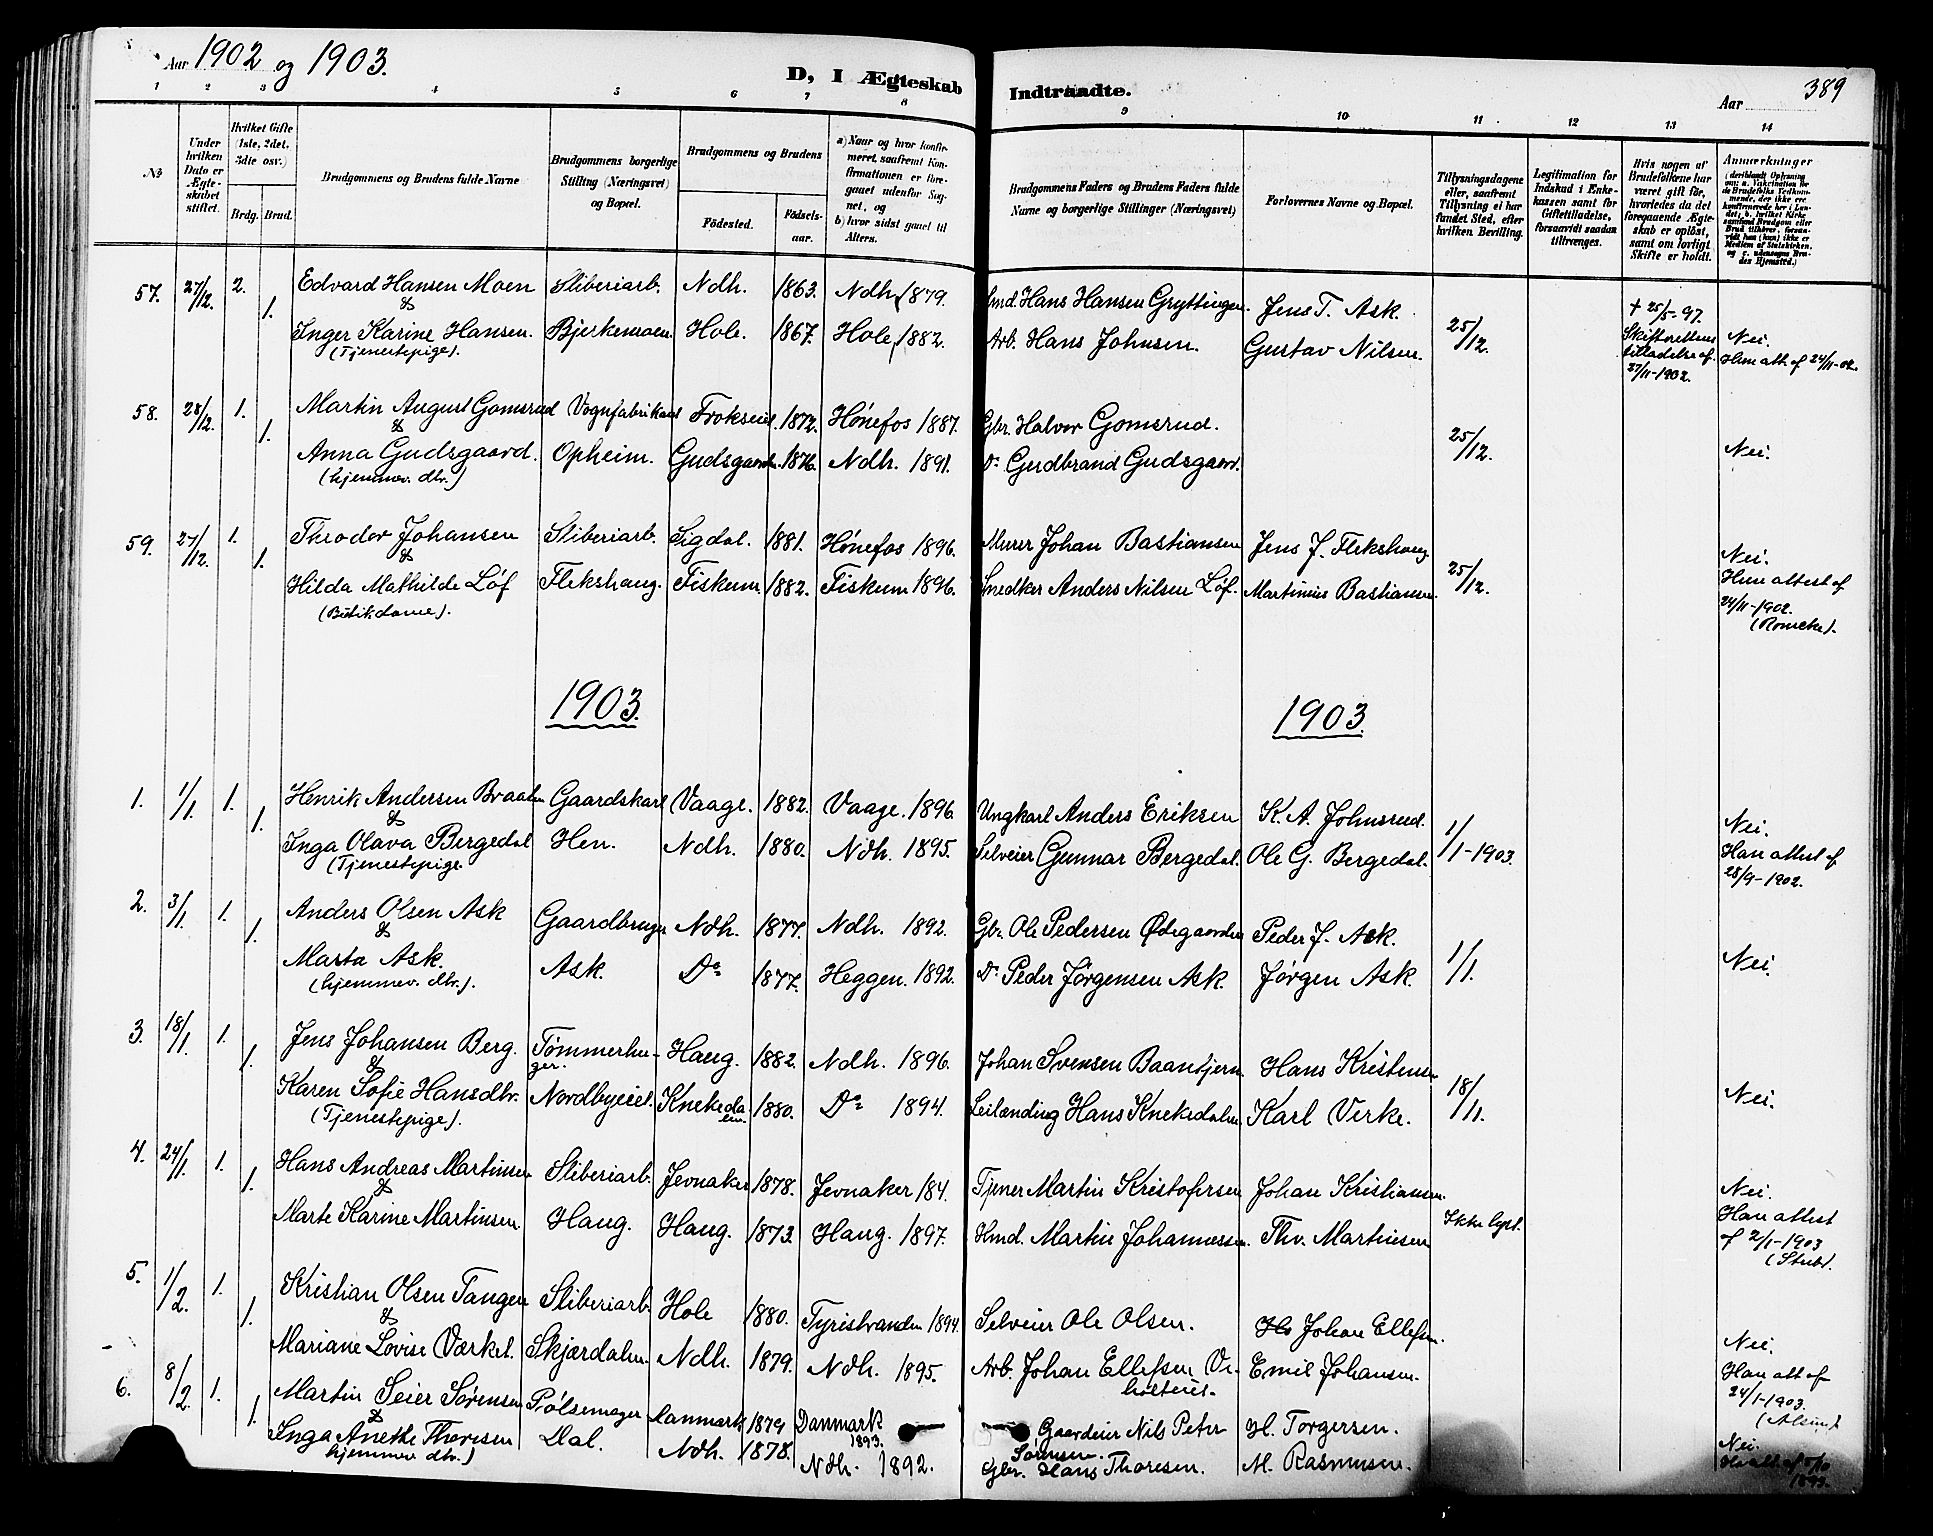 Aar 1902 og 1903.
D, I Ægteskab Indtraadte.
Aar 389
1 2 3 4 5 6 7 8 9 10 11 12 13 14
No
Under hvilken Dato er Ægteskabet stiftet.
Hvilket Gifte (1ste, 2det, 3die osv.)
Brdg. Brud.
Brudgommens og Brudens fulde Navne
Brudgommens borgerlige Stilling (Næringsvei) og Bopæl.
Brudgommens og Brudens
Födested. Födselsaar.
a) Naar og hvor konfirmeret, saafremt Konfirmationen er foregaaet udenfor Sognet, og
b) hvor sidst gaaet til Alters.
Brudgommens Faders og Brudens Faders fulde Navne og borgerlige Stillinger (Næringsvei)
Forlovernes Navne og Bopæl.
Tillysningsdagene eller, saafremt Tillysning ei har fundet Sted, efter hvilken Bevilling.
Legitimation for Indskud i Enkekassen samt for Giftetilladelse, forsaavidt saadan tiltrænges.
Hvis nogen af Brudefolkene har været gift før, hvorledes da det foregaaende Ægteskab er opløst, samt om lovligt Skifte er holdt.
Anmærkninger
57. 27/12. 2. Edvard Hansen Moen Sliberiarb. Ndh. 1863. Ndh. 1879. Hmd. Hans Hansen Gryttingen. Jens T. Ask.
&
1. Inger Karine Hansen. Bjerkemoen. Hole. 1867. Hole, 1882. Arb. Hans Johnsen. Gustav Nilsen. 25/12.
(Tjenestepige).
† 25/5-97.
Skifterettens
tilladelse af
27/11-1902.
Nei.
Hun att. af 24/11-02.
58. 28/12. 1. Martin August Gomsrud Vognfabrikant Trokseid. 1872. Hónefos 1887. Gbr. Halvor Gomsrud.
&
1. Anna Gudsgaard. Opheim. Gudsgaard. 1876. Ndh. 1891. Do Gudbrand Gudsgaard. 25/12. Nei.
(hjemmev. dtr.)
59. 27/12. 1. Theodor Johansen Sliberiarb. Sigdal. 1881. Hónefos 1896. Murer Johan Bastiansen Jens J. Flekshaug
&
1. Hilda Mathilde Löf Flekshaug. Fiskum. 1882. Fiskum 1896. Snedker Anders Nilsen Löf. Martinius Bastiansen. 25/12.
(Butikdame).
Nei.
Hun attest af
24/11-1902.
1903. 1903.
1. 1/1. 1. Henrik Andersen Braaten Gaardskarl Vaage. 1882. Vaage. 1896. Ungkarl Anders Eriksen K. A. Johnsrud.
&
1. Inga Olava Bergedal Hen. Ndh. 1880. Ndh. 1895. Selveier Gunnar Bergedal. Ole G. Bergedal. 1/1-1903.
(Tjenestepige
Nei.
Han attest af
28/9-1902.
2. 3/1. 1. Anders Olsen Ask Gaardbruger Ndh. 1877. Ndh. 1892. Gbr. Ole Pedersen Ødegaarden Peder J. Ask.
&
1. Marta Ask. Ask. Do 1877. Heggen. 1892. Do Peder Jørgensen Ask. Jørgen Ask. 1/1. Nei.
(hjemmev. dtr.).
3. 18/1. 1. Jens Johansen Berg. Tømmerhu- Haug. 1882. Ndh. 1896. Johan Svensen Baantjern Hans Kristensen
& ger.
1. Karen Sofie Hansdtr. Nordbyeiet. Knekeda 1880. Do 1894. Leilænding Hans Knekedalen. Karl Virke. 18/1. Nei.
(Tjenestepige). len.
4. 24/1. 1. Hans Andreas Martinsen Sliberiarb. Jevnaker 1878. Jevnaker 184. Tjener Martin Kristofersen Johan Kristiansen.
&
1. Marte Karine Martinsen. Haug. Haug. 1873. Haug. 1897. Hmd. Martin Johannessen. Thv. Martinsen Ikke lyst.
Nei.
Han attest
af 2/1-1903
5. 1/2. 1. Kristian Olsen Tangen Sliberiarb. Hole 1880. Tyristranden 1894. Selveier Ole Olsen. Johan Ellefsen.
&
1. Mariane Lovise Værket. Skjærdalen. Ndh. 1879. Ndh. 1895. Arb. Johan Ellefsen Ve- Emil Johansen.
holteiet.
Nei.
Han att. af
24/1-1903.
6. 8/2. 1. Martin Seier Sørensen Pølsemager Danmark 1879 Danmark Gaardeier Nils Peter H. Torgersen.
& 1893. Sørensen.
1. Inga Anette Thoresen Dal. Ndh. 1878. Ndh. 1892. Gbr. Hans Thoresen. M. Rasmussen.
hjemmev. dtr.)
Nei.